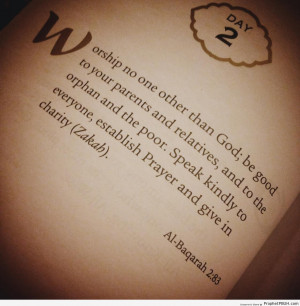 DAY
2
Worship no one other than God; be good
to your parents and relatives, and to the
orphan and the poor. Speak kindly to
everyone, establish Prayer and give in
charity (Zakah).
Al-Baqarah 2:83